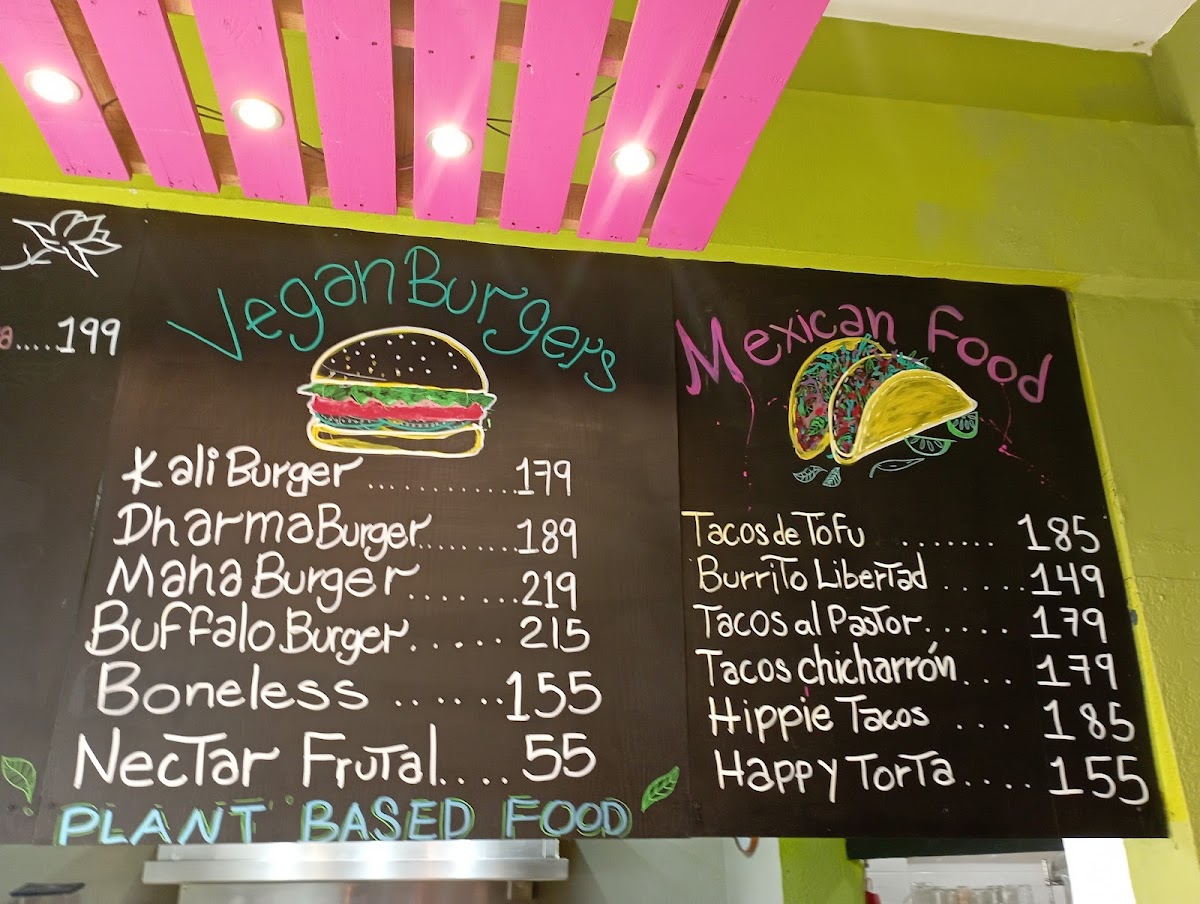 199
Vegan Burgers
Kali Burger ............. 179
Dharma Burger ......... 189
Maha Burger ....... 219
Buffalo Burger ..... 215
Boneless ...... 155
Nectar Frutal .... 55
PLANT BASED FOOD
Mexican Food
Tacos de Tofu ....... 185
Burrito Libertad ..... 149
Tacos al Pastor ..... 179
Tacos chicharrón ... 179
Hippie Tacos ... 185
Happy Torta .... 155